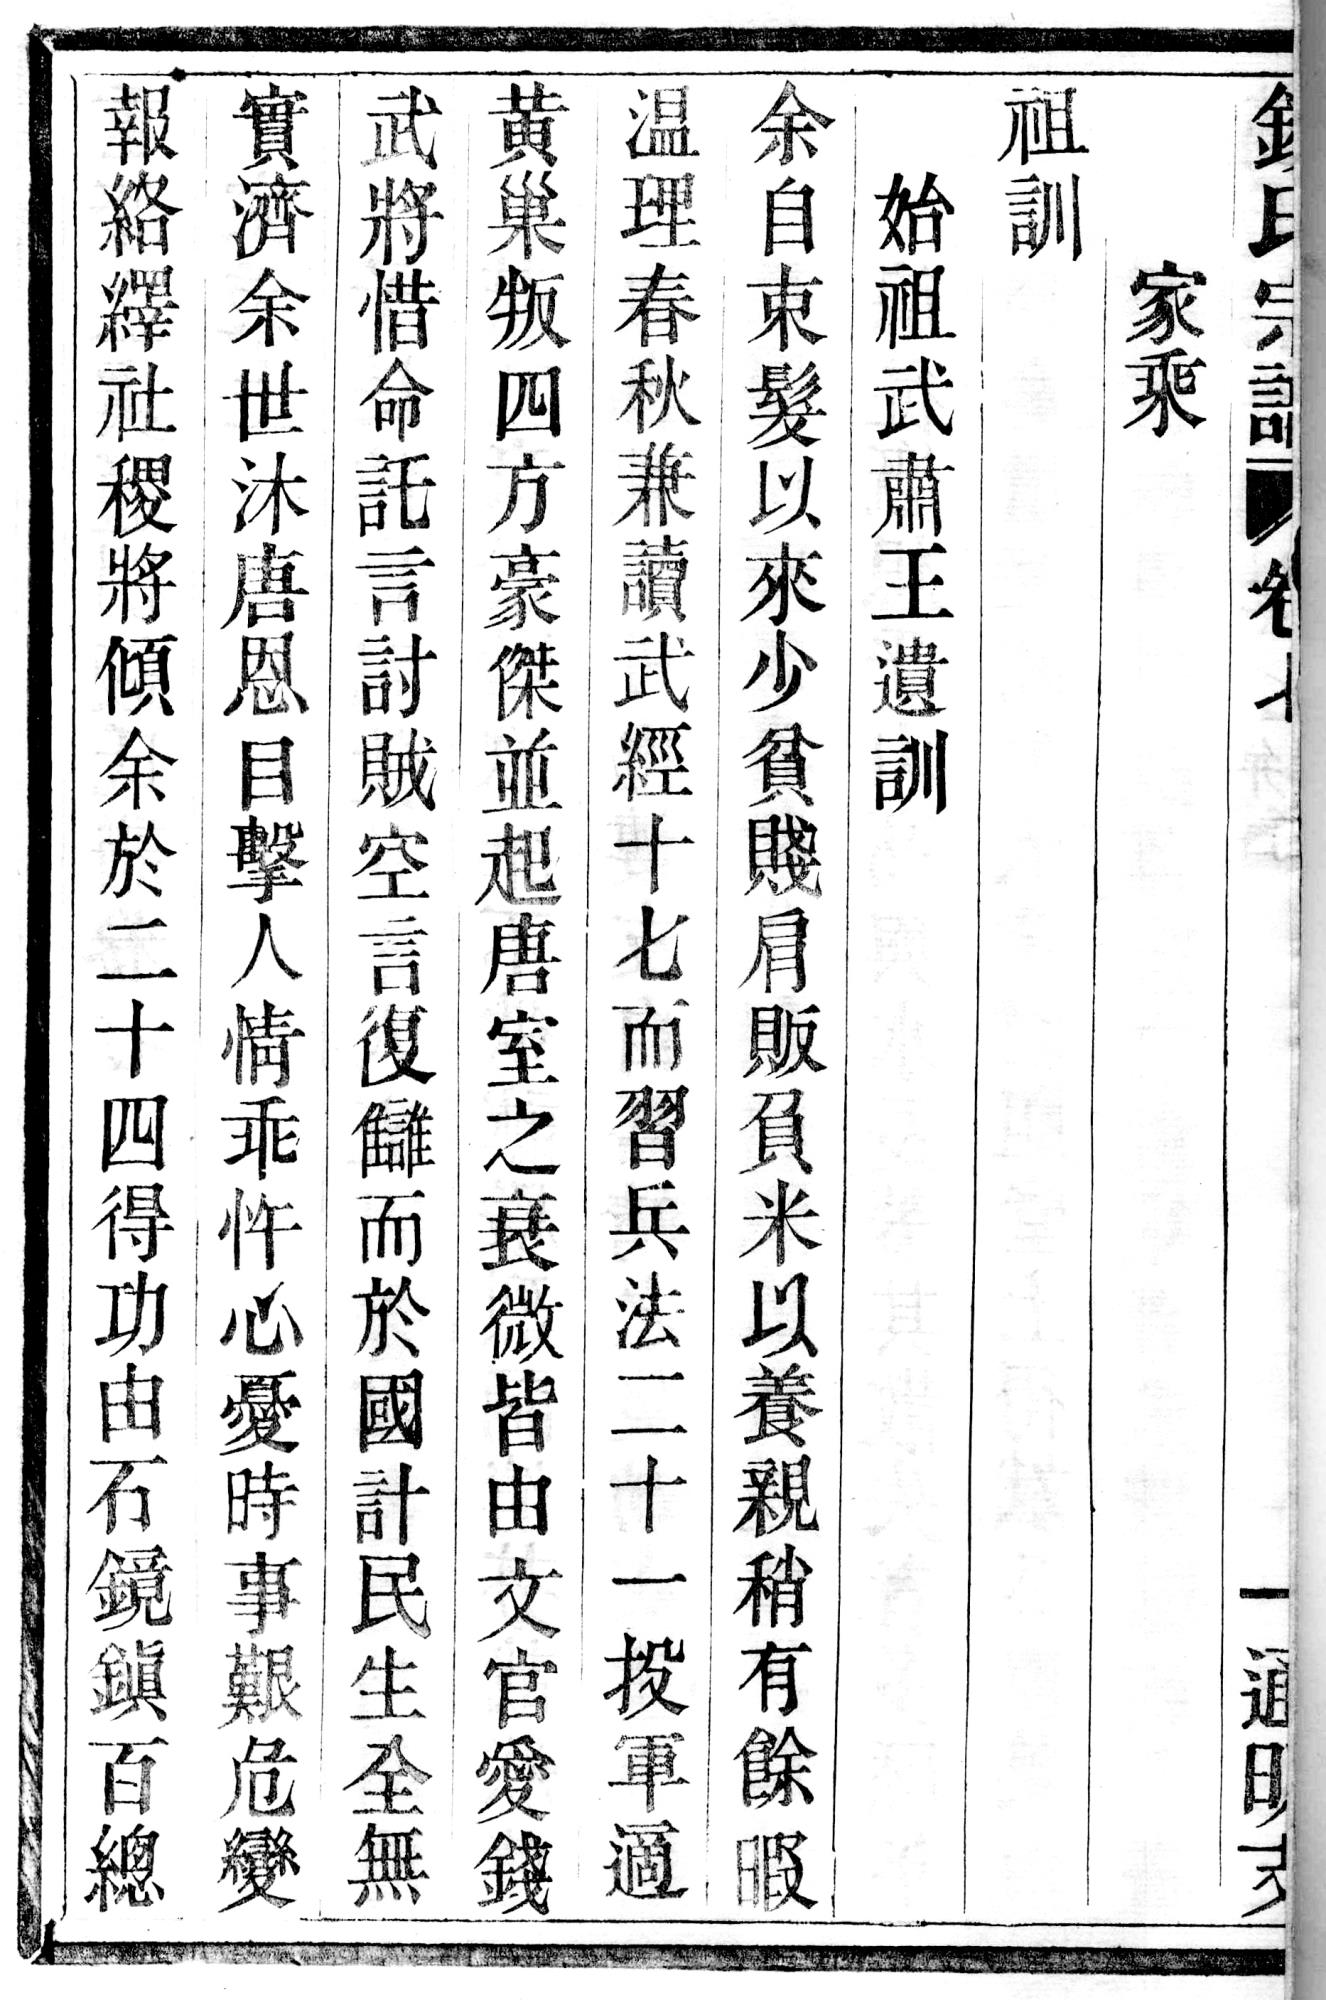 錢氏宗譜 卷七 一 通明文
家乘
祖訓
始祖武肅王遺訓
余自束髮以來少貧賤肩販負米以養親稍有餘暇
温理春秋兼讀武經十七而習兵法二十一投軍適
黄巢叛四方豪傑並起唐室之衰微皆由文官愛錢
武將惜命託言討賊空言復讎而於國計民生全無
實濟余世沐唐恩目擊人情乖忤心憂時事艱危變
報絡繹社稷將傾余於二十四得功由石鏡鎭百總